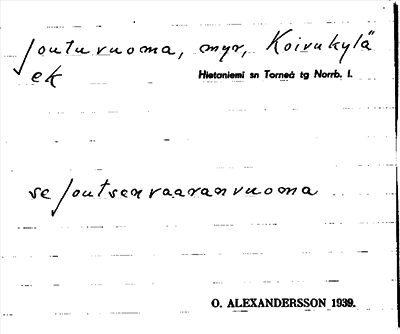 Joutuvuoma, myr, Koivukylä
ek Hietaniemi sn Torneå tg Norrb. l.
se Joutsenvaaranvuoma
O. ALEXANDERSSON 1939.